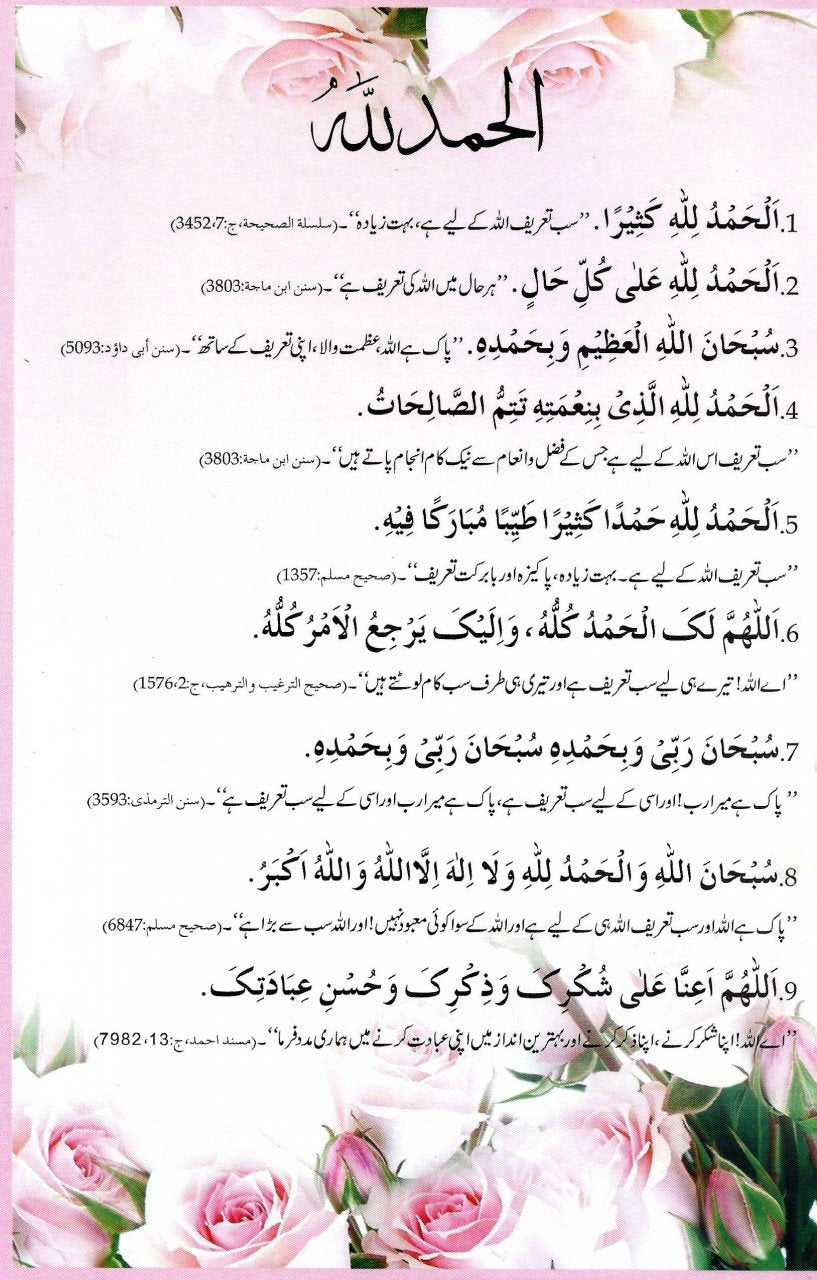 الحمدللہ
1. اَلْحَمْدُ لِلّٰهِ كَثِيْرًا. ’’سب تعریف اللہ کے لیے ہے، بہت زیادہ‘‘۔ (سلسلة الصحيحة، ج:7، 3452)
2. اَلْحَمْدُ لِلّٰهِ عَلٰى كُلِّ حَالٍ. ’’ہر حال میں اللہ کی تعریف ہے‘‘۔ (سنن ابن ماجة:3803)
3. سُبْحَانَ اللّٰهِ الْعَظِيْمِ وَبِحَمْدِهِ. ’’پاک ہے اللہ عظمت والا، اپنی تعریف کے ساتھ‘‘۔ (سنن أبى داؤد:5093)
4. اَلْحَمْدُ لِلّٰهِ الَّذِىْ بِنِعْمَتِهِ تَتِمُّ الصَّالِحَاتُ.
’’سب تعریف اس اللہ کے لیے ہے جس کے فضل و انعام سے نیک کام انجام پاتے ہیں‘‘۔ (سنن ابن ماجة:3803)
5. اَلْحَمْدُ لِلّٰهِ حَمْدًا كَثِيْرًا طَيِّبًا مُبَارَكًا فِيْهِ.
’’سب تعریف اللہ کے لیے ہے۔ بہت زیادہ، پاکیزہ اور بابرکت تعریف‘‘۔ (صحيح مسلم:1357)
6. اَللّٰهُمَّ لَکَ الْحَمْدُ كُلُّهُ، وَاِلَيْکَ يَرْجِعُ الْاَمْرُ كُلُّهُ.
’’اے اللہ! تیرے ہی لیے سب تعریف ہے اور تیری ہی طرف سب کام لوٹتے ہیں‘‘۔ (صحيح الترغيب والترهيب، ج:2، 1576)
7. سُبْحَانَ رَبِّىْ وَبِحَمْدِهِ سُبْحَانَ رَبِّىْ وَبِحَمْدِهِ.
’’پاک ہے میرا رب! اور اسی کے لیے سب تعریف ہے، پاک ہے میرا رب اور اسی کے لیے سب تعریف ہے‘‘۔ (سنن الترمذى:3593)
8. سُبْحَانَ اللّٰهِ وَالْحَمْدُ لِلّٰهِ وَلَا اِلٰهَ اِلَّا اللّٰهُ وَاللّٰهُ اَكْبَرُ.
’’پاک ہے اللہ اور سب تعریف اللہ ہی کے لیے ہے اور اللہ کے سوا کوئی معبود نہیں! اور اللہ سب سے بڑا ہے‘‘۔ (صحيح مسلم:6847)
9. اَللّٰهُمَّ اَعِنَّا عَلٰى شُكْرِکَ وَذِكْرِکَ وَحُسْنِ عِبَادَتِکَ.
’’اے اللہ! اپنا شکر کرنے، اپنا ذکر کرنے اور بہترین انداز میں اپنی عبادت کرنے میں ہماری مدد فرما‘‘۔ (مسند احمد، ج:13، 7982)